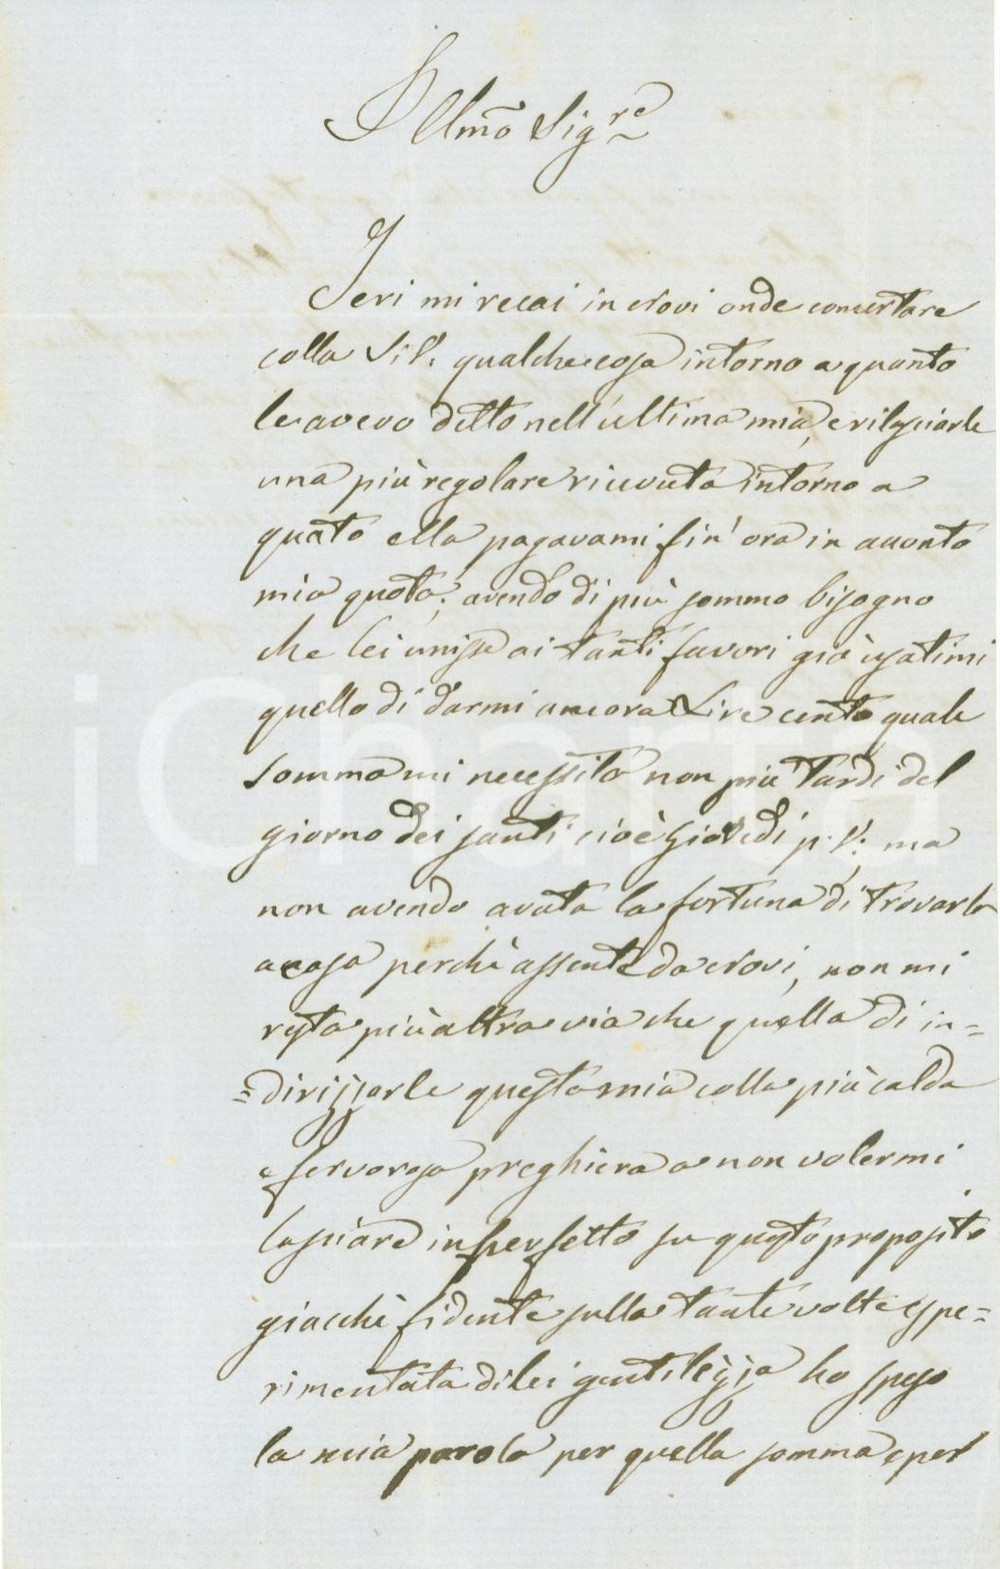 Illmo Sigre
Ieri mi recai in Novi onde concertare
colla S.V. qualche cosa intorno a quanto
le avevo detto nell'ultima mia, e rilasciarle
una più regolare ricevuta intorno a
quato ella pagavami fin'ora in acconto
mia quota; avendo di più sommo bisogno
che lei unisse ai tanti favori già usatimi
quello di darmi ancora Lire cento, quale
somma mi necessita non più tardi del
giorno dei santi cioè Giovedi p.V.; ma
non avendo avuta la fortuna di trovarla
a casa perchè assente da Novi, non mi
resta più altra via che quella di in=
=dirizzarle questa mia colla più calda
e fervorosa preghiera a non volermi
lasciare imperfetto su questo proposito
giacchè fidente sulla tante volte espe=
rimentata di lei gentilezza ho speso
la mia parola per quella somma e pel
iCharta